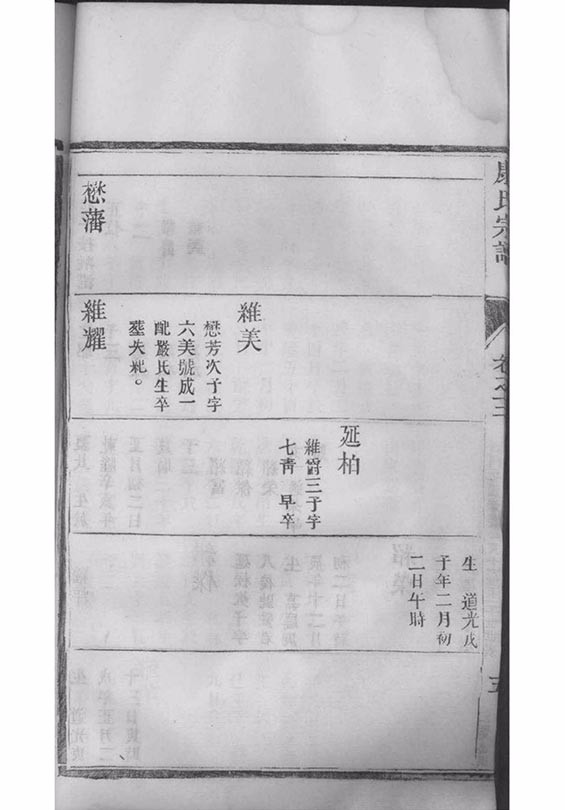 康氏宗譜
卷之三
生 道光戊
子年二月初
二日午時
延柏
維爵三子字
七靑 早卒
維美
懋芳次子字
六美號成一
配嚴氏生卒
塟失紀。
懋藩
維耀